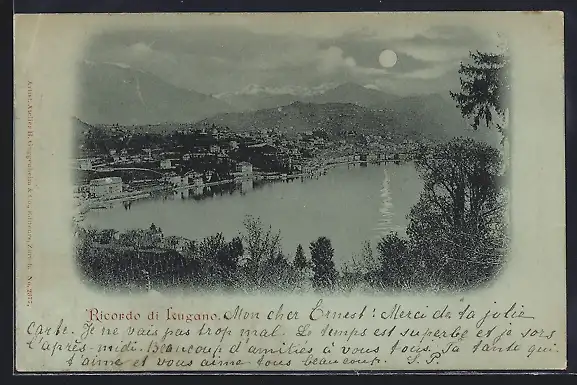 Ricordo di Lugano.
Mon cher Ernest! Merci de ta jolie
carte. Je ne vais pas trop mal. Le temps est superbe et je sors
l'après-midi. Beaucoup d'amitiés à vous tous. Ta tante qui
t'aime et vous aime tous beaucoup.
Artist. Atelier H. Guggenheim & Co., Editeurs, Zürich. No.